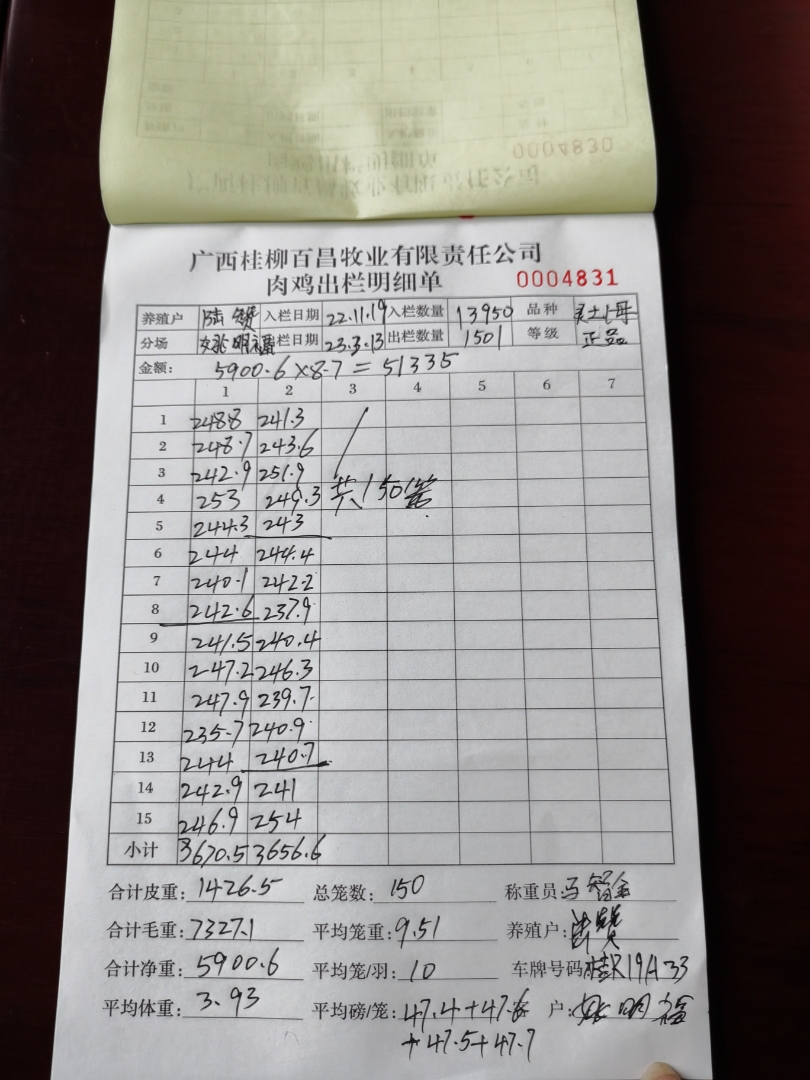 0004830
广西桂柳百昌牧业有限责任公司
肉鸡出栏明细单 0004831
养殖户 陆 赞 入栏日期 22.11.19 入栏数量 13950 品种 灵土1号
分场 姚明福 出栏日期 23.3.13 出栏数量 1501 等级 正品
金额: 5900.6×8.7=51335
1 2 3 4 5 6 7
1 248.8 241.3
2 248.7 243.6
3 242.9 251.9
4 253 249.3 共150笼
5 244.3 243
6 244 244.4
7 240.1 242.2
8 242.6 237.9
9 241.5 240.4
10 247.2 246.3
11 247.9 239.7
12 235.7 240.9
13 244 240.7
14 242.9 241
15 246.9 254
小计 3670.5 3656.6
合计皮重: 1426.5 总笼数: 150 称重员:
合计毛重: 7327.1 平均笼重: 9.51 养殖户:
合计净重: 5900.6 平均笼/羽: 10 车牌号码 桂R19A33
平均体重: 3.93 平均磅/笼: 47.4+47.6 户: 姚明福
+47.5+47.7